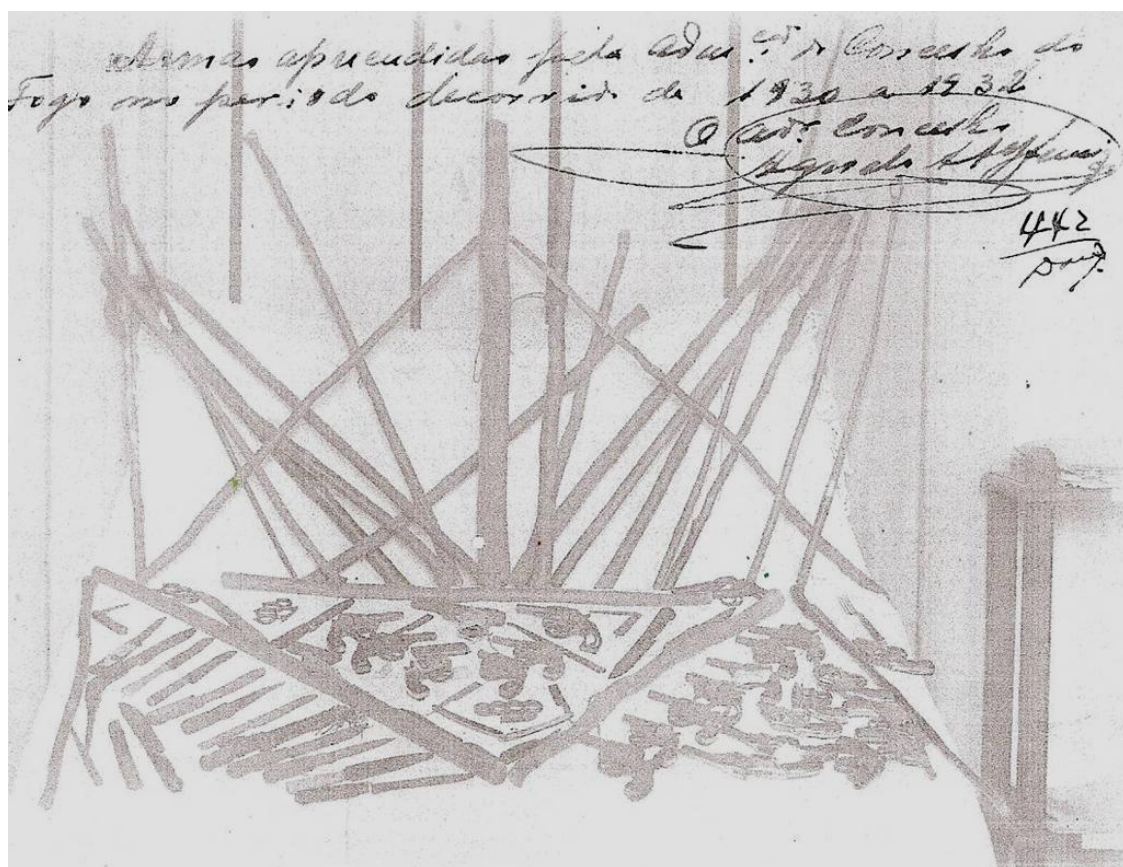 Armas aprendidas pela Adm.ção do Concelho do
Fogo no periodo decorrido de 1930 a 1932
O Adr Concelho
442